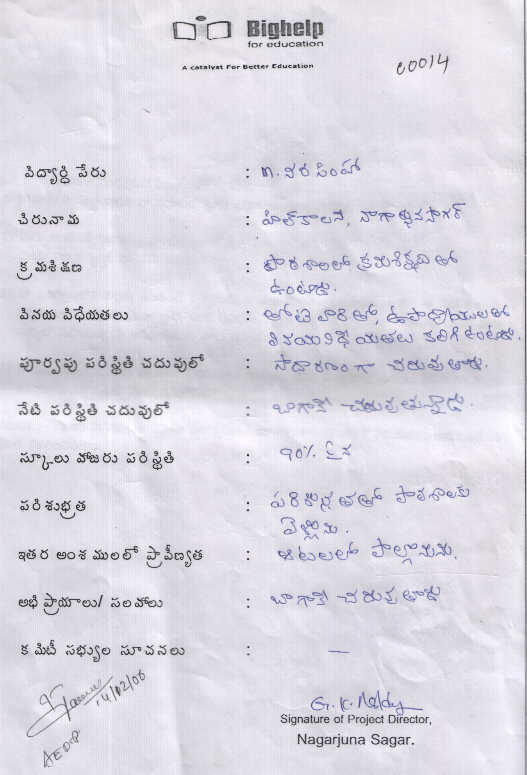 Bighelp
for education
A catalyst For Better Education
00014
విద్యార్థి పేరు : M. వీర సింహా
చిరునామ : హిల్ కాలనీ, నాగార్జునసాగర్
క్రమశిక్షణ : పాఠశాలలో క్రమశిక్షణతో
ఉంటాడు.
వినయ విధేయతలు : తోటి వారితో, ఉపాధ్యాయులతో
వినయవిధేయతలు కలిగి ఉంటాడు.
పూర్వపు పరిస్థితి చదువులో : సాదారణంగా చదువుతాడు.
నేటి పరిస్థితి చదువులో : బాగానే చదువుతున్నాడు.
స్కూలు హాజరు పరిస్థితి : 90% పైన
పరిశుభ్రత : పరిశుభ్రతతో పాఠశాలకు
వెళ్లును.
ఇతర అంశములలో ప్రావీణ్యత : ఆటలలో పాల్గొనును.
అభిప్రాయాలు/ సలహాలు : బాగానే చదువుతాడు
కమిటీ సభ్యుల సూచనలు : —
14/02/06
AEDP
G. K. Reddy
Signature of Project Director,
Nagarjuna Sagar.